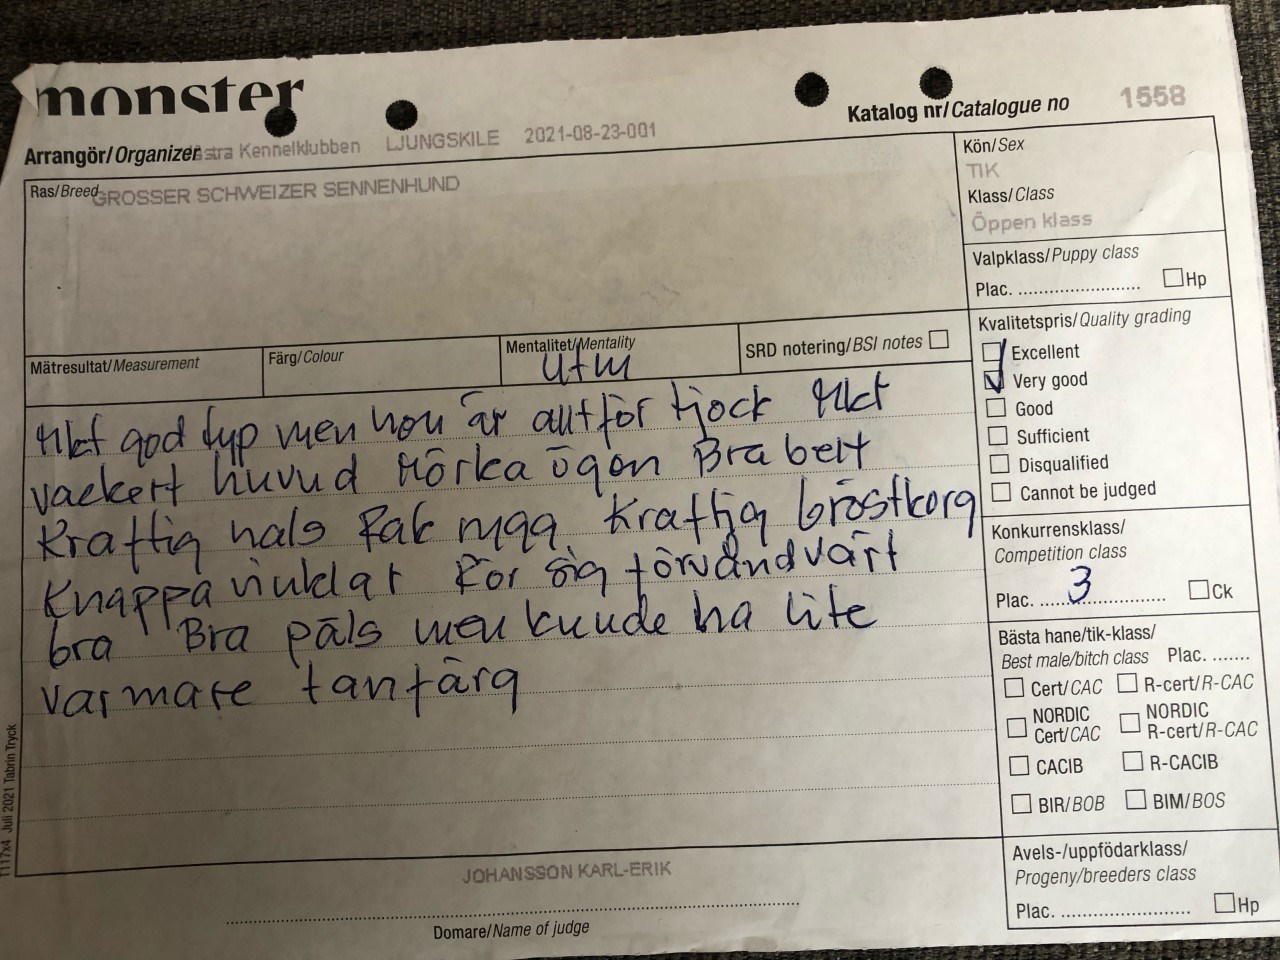 monster
Katalog nr/Catalogue no 1558
Arrangör/Organizer stra Kennelklubben LJUNGSKILE 2021-08-23-001
Ras/Breed GROSSER SCHWEIZER SENNENHUND
Kön/Sex
TIK
Klass/Class
Öppen klass
Valpklass/Puppy class
Plac. ........................ Hp
Mätresultat/Measurement
Färg/Colour
Mentalitet/Mentality
utm
SRD notering/BSI notes
Kvalitetspris/Quality grading
Excellent
Very good
Good
Sufficient
Disqualified
Cannot be judged
Mkt god typ men hon är alltför tjock Mkt
vackert huvud Mörka ögon Bra bett
Kraftig hals Rak rygg. Kraftig bröstkorg
Knappa vinklar Rör sig förvånandvärt
bra Bra päls men kunde ha lite
varmare tanfärg
Konkurrensklass/
Competition class
Plac. ....3.................. Ck
Bästa hane/tik-klass/
Best male/bitch class Plac. .......
Cert/CAC R-cert/R-CAC
NORDIC Cert/CAC NORDIC R-cert/R-CAC
CACIB R-CACIB
BIR/BOB BIM/BOS
Avels-/uppfödarklass/
Progeny/breeders class
Plac. ......................... Hp
JOHANSSON KARL-ERIK
Domare/Name of judge
1117x4 Juli 2021 Tabrin Tryck